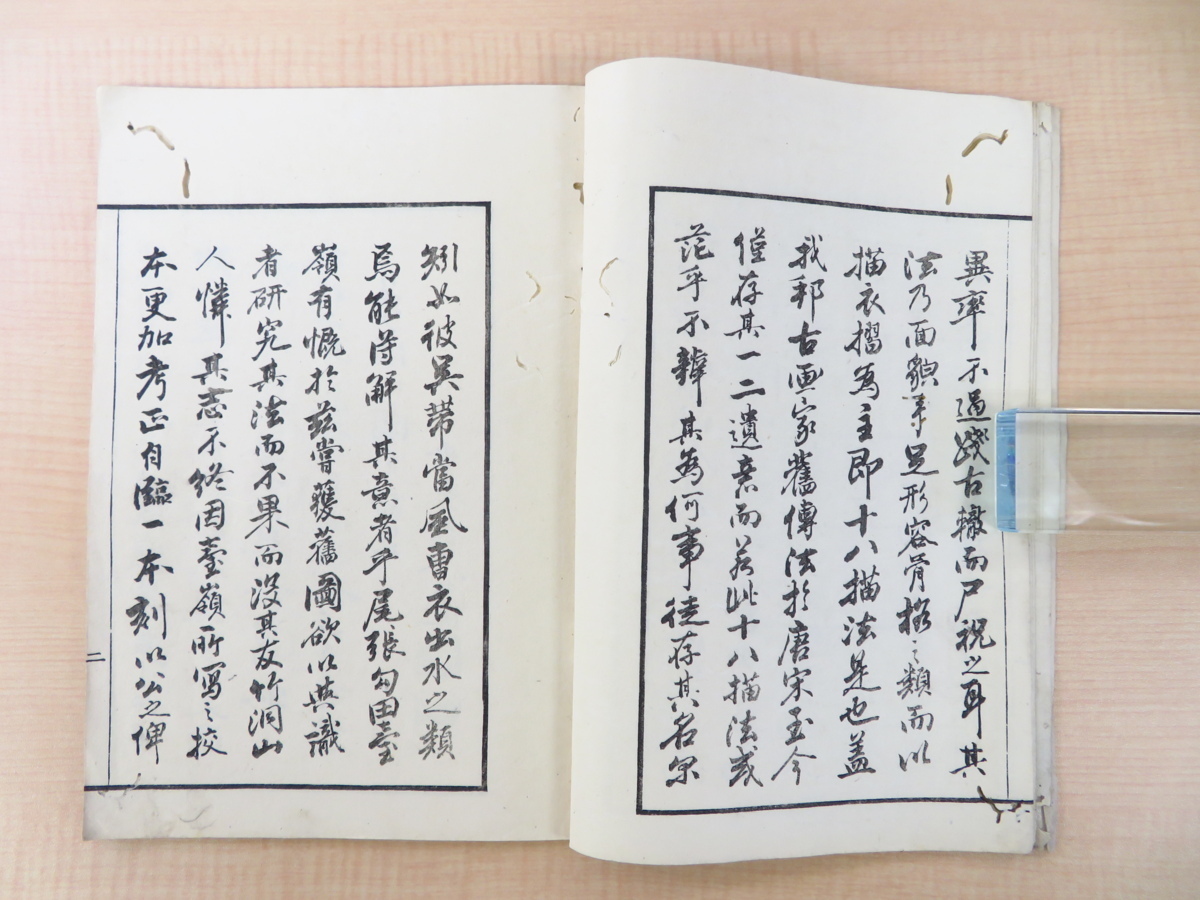 異率不過踐古轍而尸祝之耳其
法乃面貌手足形容骨格之類而以
描衣摺為主即十八描法是也蓋
我邦古画家舊傳法於唐宋至今
僅存其一二遺意而若此十八描法或
茫乎不辨其為何事徒存其名尔
矧如彼吳帶當風曹衣出水之類
焉能得解其意者乎尾張勾田臺
嶺有慨於茲嘗獲舊圖欲以與識
者研究其法而不果而没其友竹洞山
人憐其志不終因臺嶺所寫之挍
本更加考正自臨一本刻以公之俾
二